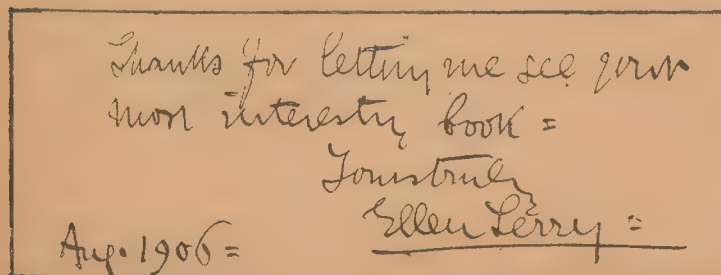 Thanks for letting me see your
most interesting book =
Yours truly
Ellen Terry =
Aug. 1906 =